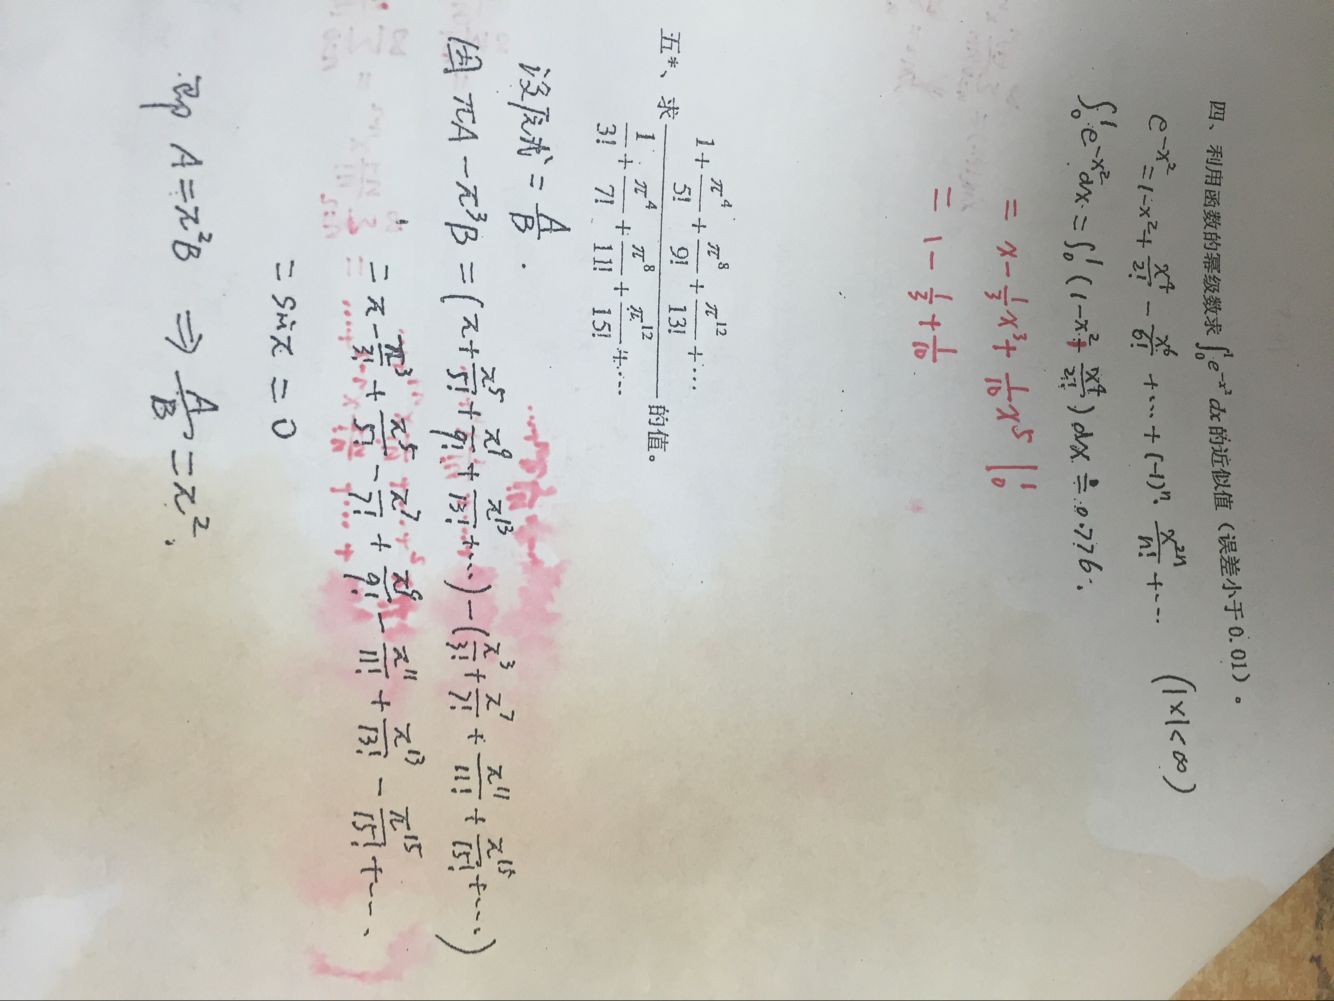 四、利用函数的幂级数求 ∫₀¹ e^{-x²} dx 的近似值（误差小于 0.01）。
e^{-x²} = 1 - x² + x⁴/2! - x⁶/6! + ⋯ + (-1)ⁿ · x²ⁿ/n! + ⋯ (|x| < ∞)
∫₀¹ e^{-x²} dx = ∫₀¹ (1 - x² + x⁴/2!) dx ≐ 0.776.
= x - 1/3 x³ + 1/10 x⁵ |₀¹
= 1 - 1/3 + 1/10
五*、求 (1 + π⁴/5! + π⁸/9! + π¹²/13! + ⋯)/(1/3! + π⁴/7! + π⁸/11! + π¹²/15! + ⋯) 的值。
设原式 = A/B.
因 πA - π³B = (π + π⁵/5! + π⁹/9! + π¹³/13! + ⋯) - (π³/3! + π⁷/7! + π¹¹/11! + π¹⁵/15! + ⋯)
= π - π³/3! + π⁵/5! - π⁷/7! + π⁹/9! - π¹¹/11! + π¹³/13! - π¹⁵/15! + ⋯
= sinπ = 0
即 A = π²B ⇒ A/B = π².